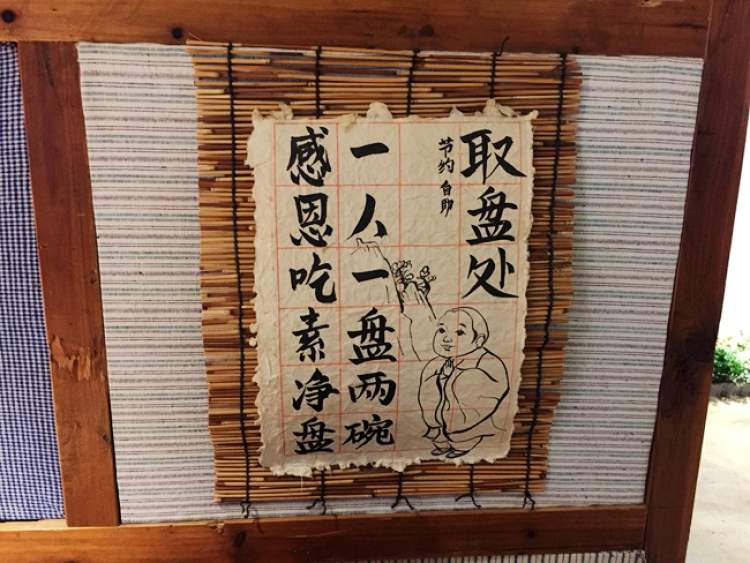 取盘处
节约 自助
一人一盘两碗
感恩吃素净盘